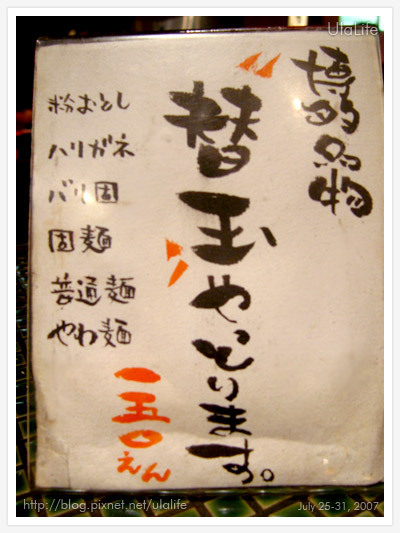 UlaLife
博多名物
"替玉"やっとります。
粉おとし
ハリガネ
バリ固
固麺
普通麺
やわ麺
一五〇えん
http://blog.pixnet.net/ulalife
July 25-31, 2007